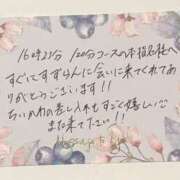 16時25分 120分コースの本指名様へ
すぐにすずらんに会いに来てくれてあ
りがとうございます!!
ちいかわの差し入れもすごく嬉しい
また来て下さい!!